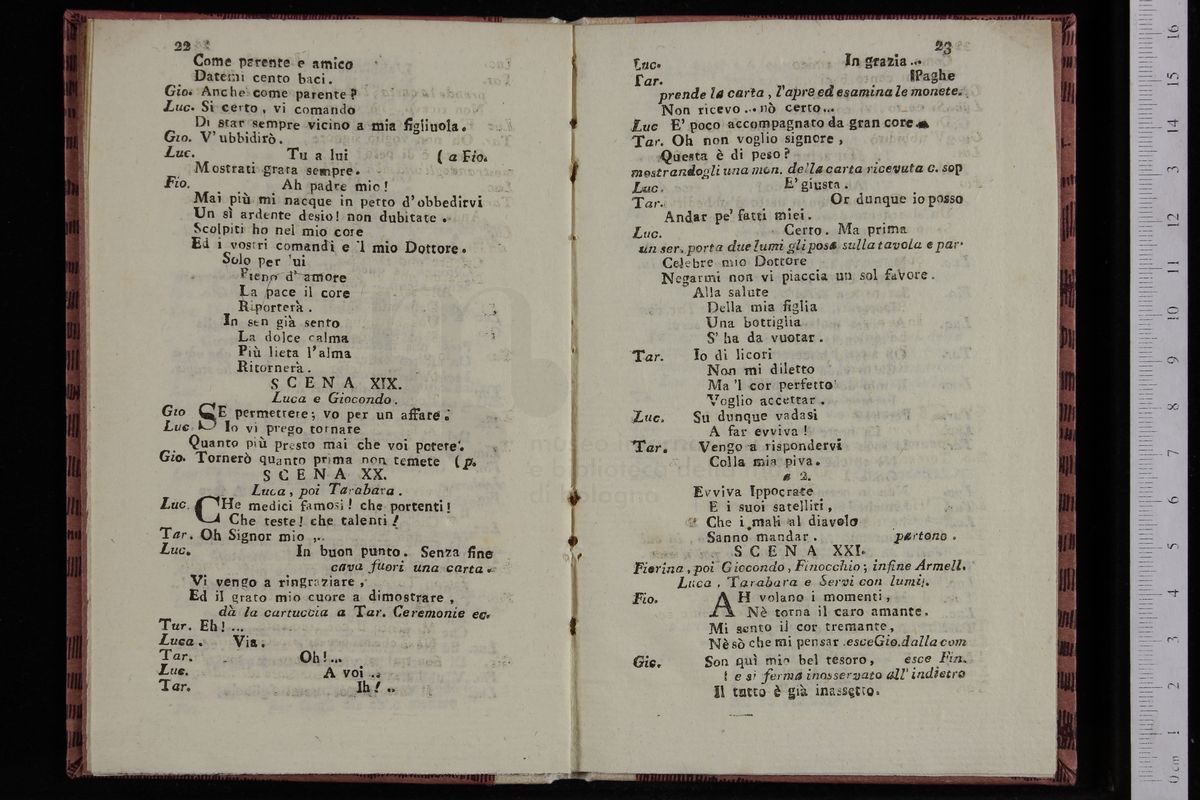 22
Come parente e amico
Datemi cento baci.
Gio. Anche come parente?
Luc. Si certo, vi comando
Di star sempre vicino a mia figliuola.
Gio. V'ubbidirò.
Luc. Tu a lui (a Fio.
Mostrati grata sempre.
Fio. Ah padre mio!
Mai più mi nacque in petto d'obbedirvi
Un sì ardente desio! non dubitate.
Scolpiti ho nel mio core
Ed i vostri comandi e 'l mio Dottore.
Solo per lui
Pieno d'amore
La pace il core
Riporterà.
In sen già sento
La dolce calma
Più lieta l'alma
Ritornerà.
SCENA XIX.
Luca e Giocondo.
Gio SE permettete; vo per un affare.
Luc Io vi prego tornare
Quanto più presto mai che voi potete.
Gio. Tornerò quanto prima non temete (p.
SCENA XX.
Luca, poi Tarabara.
Luc. CHe medici famosi! che portenti!
Che teste! che talenti!
Tar. Oh Signor mio ...
Luc. In buon punto. Senza fine
cava fuori una carta.
Vi vengo a ringraziare,
Ed il grato mio cuore a dimostrare,
dà la cartuccia a Tar. Ceremonie ec.
Tar. Eh! ...
Luca. Via.
Tar. Oh!...
Luc. A voi ..
Tar. Ih! ..
23
Luc. In grazia...
Tar. Paghe
prende la carta, l'apre ed esamina le monete.
Non ricevo ... nò certo...
Luc E' poco accompagnato da gran core.
Tar. Oh non voglio signore,
Questa è di peso?
mostrandogli una mon. della carta ricevuta c. sop
Luc. E' giusta.
Tar. Or dunque io posso
Andar pe' fatti miei.
Luc. Certo. Ma prima
un ser. porta due lumi gli posa sulla tavola e par.
Celebre mio Dottore
Negarmi non vi piaccia un sol favore.
Alla salute
Della mia figlia
Una bottiglia
S' ha da vuotar.
Tar. Io di licori
Non mi diletto
Ma 'l cor perfetto
Voglio accettar.
Luc. Su dunque vadasi
A far evviva!
Tar. Vengo a rispondervi
Colla mia piva.
a 2.
Evviva Ippocrate
E i suoi satelliti,
Che i mali al diavolo
Sanno mandar. partono.
SCENA XXI.
Fiorina, poi Giocondo, Finocchio; infine Armell.
Luca, Tarabara e Servi con lumi.
Fio. AH volano i momenti,
Nè torna il caro amante.
Mi sento il cor tremante,
Nè sò che mi pensar. esce Gio. dalla com
Gio. Son quì mio bel tesoro, esce Fin.
e si ferma inosservato all'indietro
Il tutto è già inassetto.